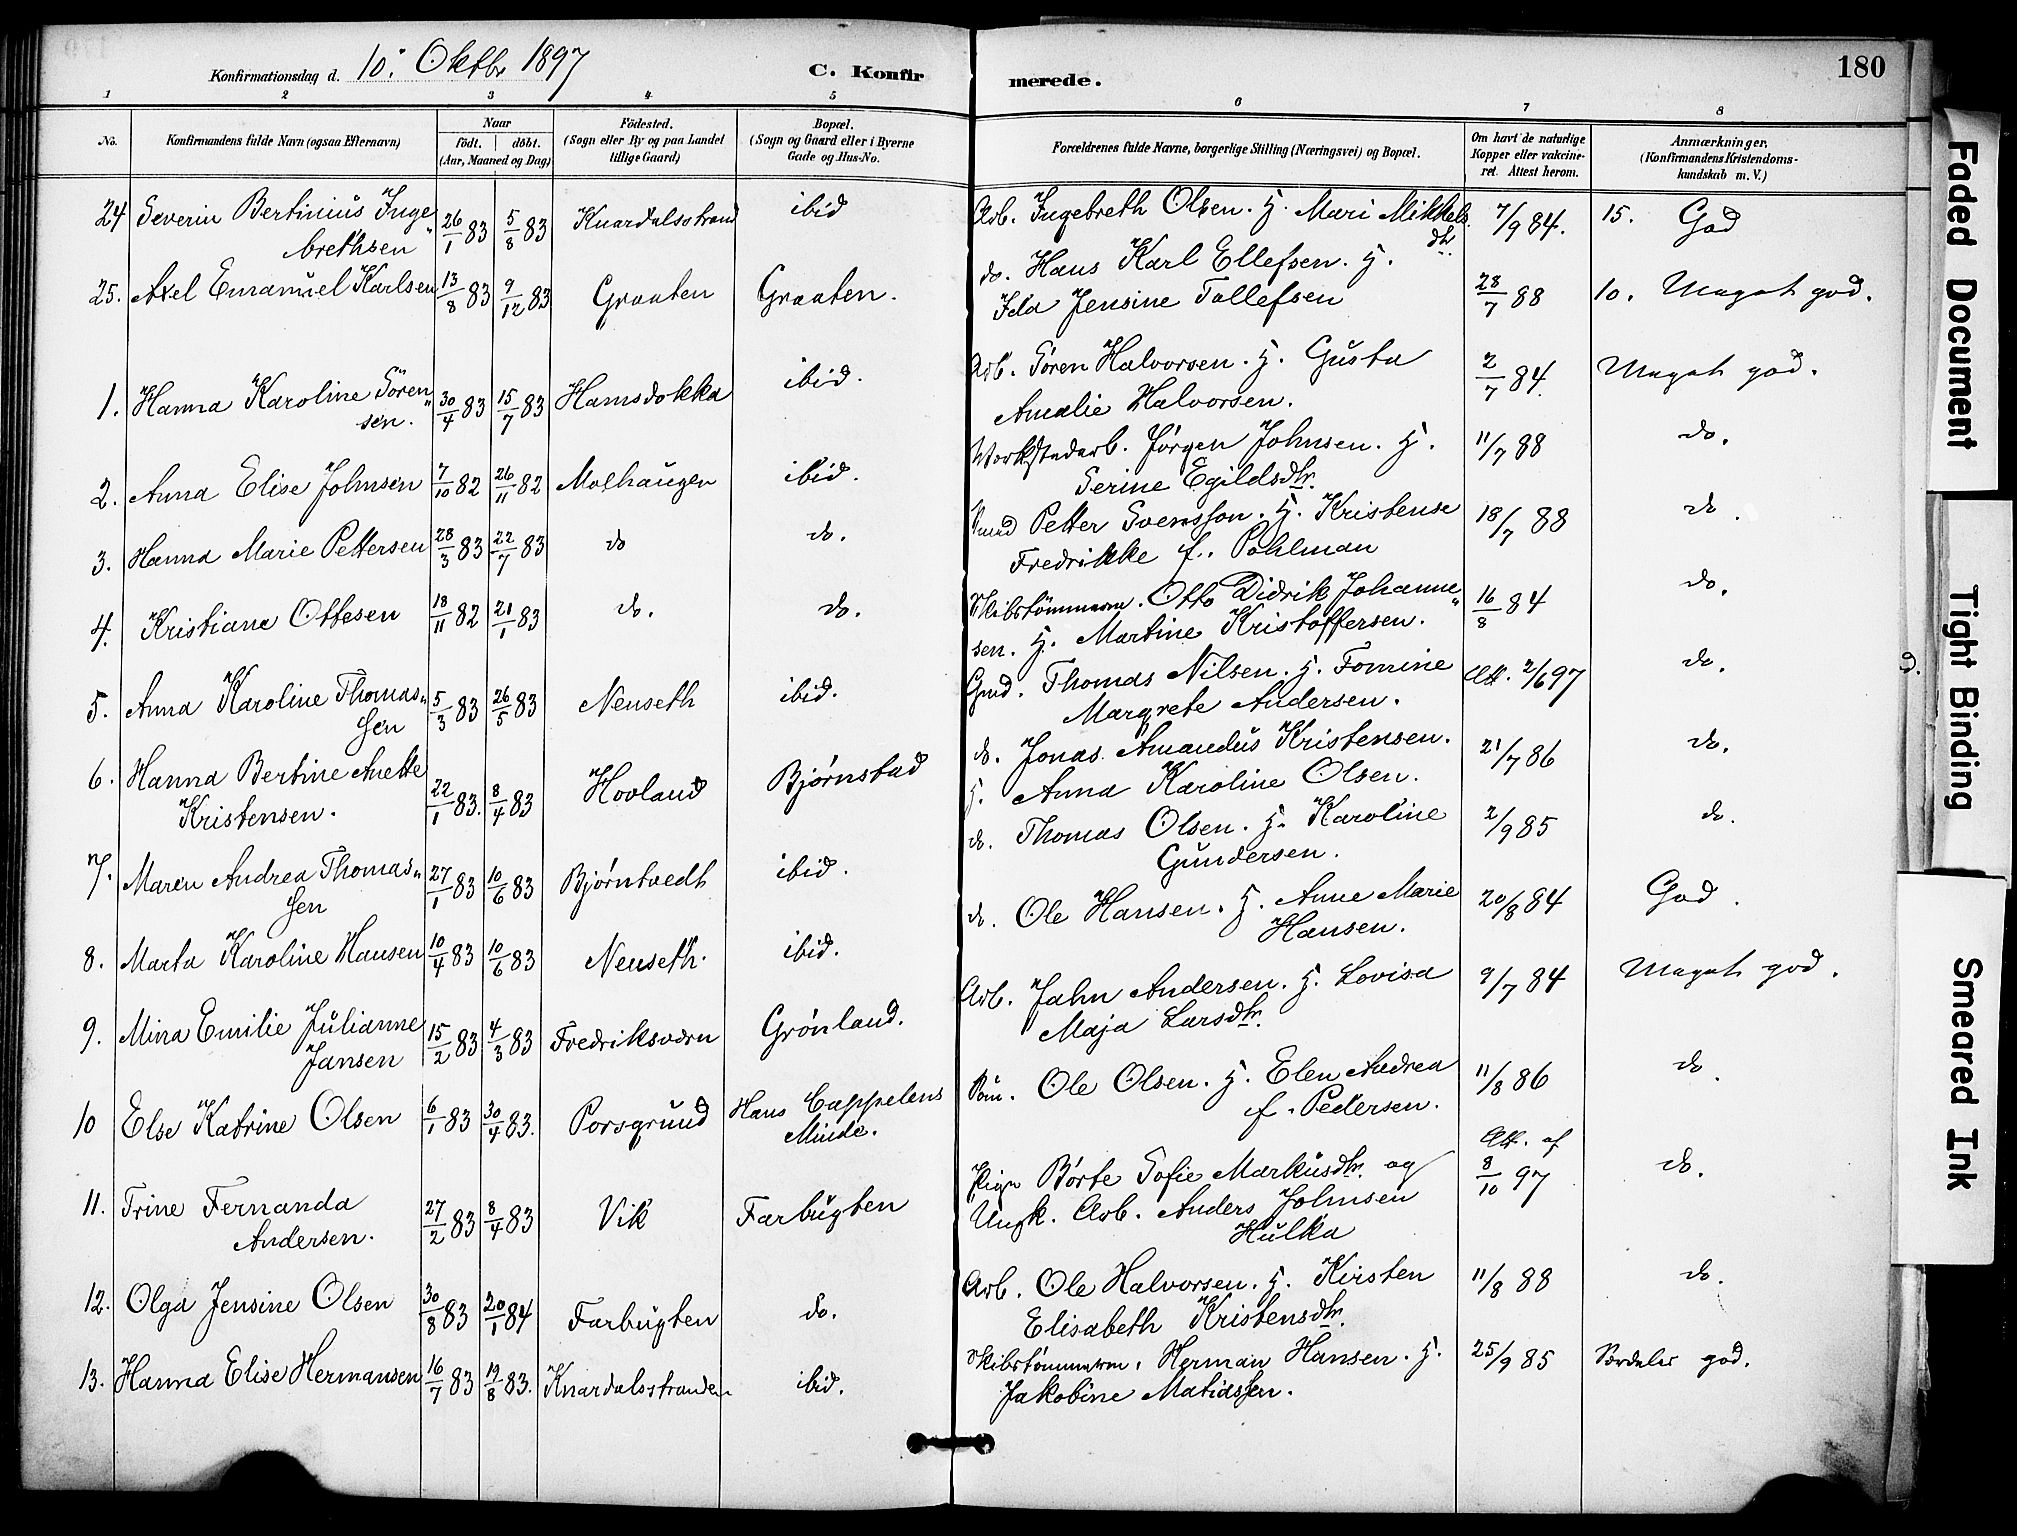 Konfirmationsdag d. 10. Oktbr 1897
C. Konfirmerede.
180
1 2 3 4 5 6 7 8
No.
Konfirmandens fulde Navn (ogsaa Efternavn)
Naar
født. | døbt.
(Aar, Maaned og Dag)
Fødested.
(Sogn eller By og paa Landet
tillige Gaard)
Bopæl.
(Sogn og Gaard eller i Byerne
Gade og Hus-No.
Forældrenes fulde Navne, borgerlige Stilling (Næringsvei) og Bopæl.
Om havt de naturlige
Kopper eller vakcine-
ret. Attest herom.
Anmærkninger.
(Konfirmandens Kristendoms-
kundskab m. V.)
24 Severin Bertinius Inge- 26/1 83 5/8 83 Knardalsstrand ibid Arb. Ingebreth Olsen. H. Mari Mikkels 7/9 84. 15. God
brethsen dtr.
25. Axel Emanuel Karlsen 13/8 83 9/12 83 Graaten Graaten. do. Hans Karl Ellefsen. H. 28/7 88 10. Meget god.
Ida Jensine Tollefsen
1. Hanna Karoline Sören- 30/4 83 15/7 83 Hamsdokka ibid. Arb. Søren Halvorsen. H. Gusta 2/7 84. Meget god.
sen. Amalie Halvorsen.
2. Anna Elise Johnsen 7/10 82 26/11 82 Mælhaugen ibid. Værkstedarb. Jørgen Johnsen. H. 11/7 88 do.
Serine Egildsdtr.
3. Hanna Marie Pettersen 28/3 83 22/7 83 do do. Smed Petter Svensson. H. Kristense 18/7 88 do.
Fredrikke f. Pohlman
4. Kristiane Ottesen 18/11 82 21/1 83 do. do. Skibstømmerm. Otto Didrik Johanne- 16/8 84 do.
sen. H. Martine Kristoffersen.
5. Anna Karoline Thomas- 5/3 83 26/5 83 Nenseth ibid. Gmd. Thomas Nilsen. H. Tomine Att. 2/6 97 do.
sen Margrete Andersen.
6. Hanna Bertine Anette 22/1 83. 8/4 83 Hovland Bjørnstad do. Jonas Amandus Kristensen. 21/7 86 do.
Kristensen. H. Anna Karoline Olsen.
7. Maren Andrea Thomas- 27/1 83 10/6 83 Bjørntvedt ibid. do. Thomas Olsen. H. Karoline 2/9 85 do.
sen Gundersen.
8. Marta Karoline Hansen 10/4 83 10/6 83 Nenseth. ibid. do. Ole Hansen. H. Anne Marie 20/8 84 God.
Hansen.
9. Mina Emilie Julianne 15/2 83 4/3 83 Fredriksværn Grønland. Arb. Jahn Andersen. H. Lovisa 9/7 84 Meget god.
Jansen Maja Larsdtr.
10 Else Katrine Olsen 6/1 83 30/4 83. Porsgrund Hans Cappelens Søm. Ole Olsen. H. Elen Andrea 11/8 86 do.
Minde. f. Pedersen.
11. Trine Fernanda 27/2 83 8/4 83 Vik Farbugten Pige Børte Sofie Markusdtr. og Att. af 8/10 97 do.
Andersen. Ungk. Arb. Anders Johnsen
Hulka
12. Olga Jensine Olsen 30/8 83 20/1 84 Farbugten do. Arb. Ole Halvorsen. H. Kirsten 11/8 88 do.
Elisabeth Kristensdtr.
13. Hanna Elise Hermansen 16/7 83 19/8 83. Knardalsstranden ibid. Skibstømmerm. Herman Hansen. H. 25/9 85 Særdeles god.
Jakobine Matiassen.
Faded Document
Tight Binding
Smeared Ink